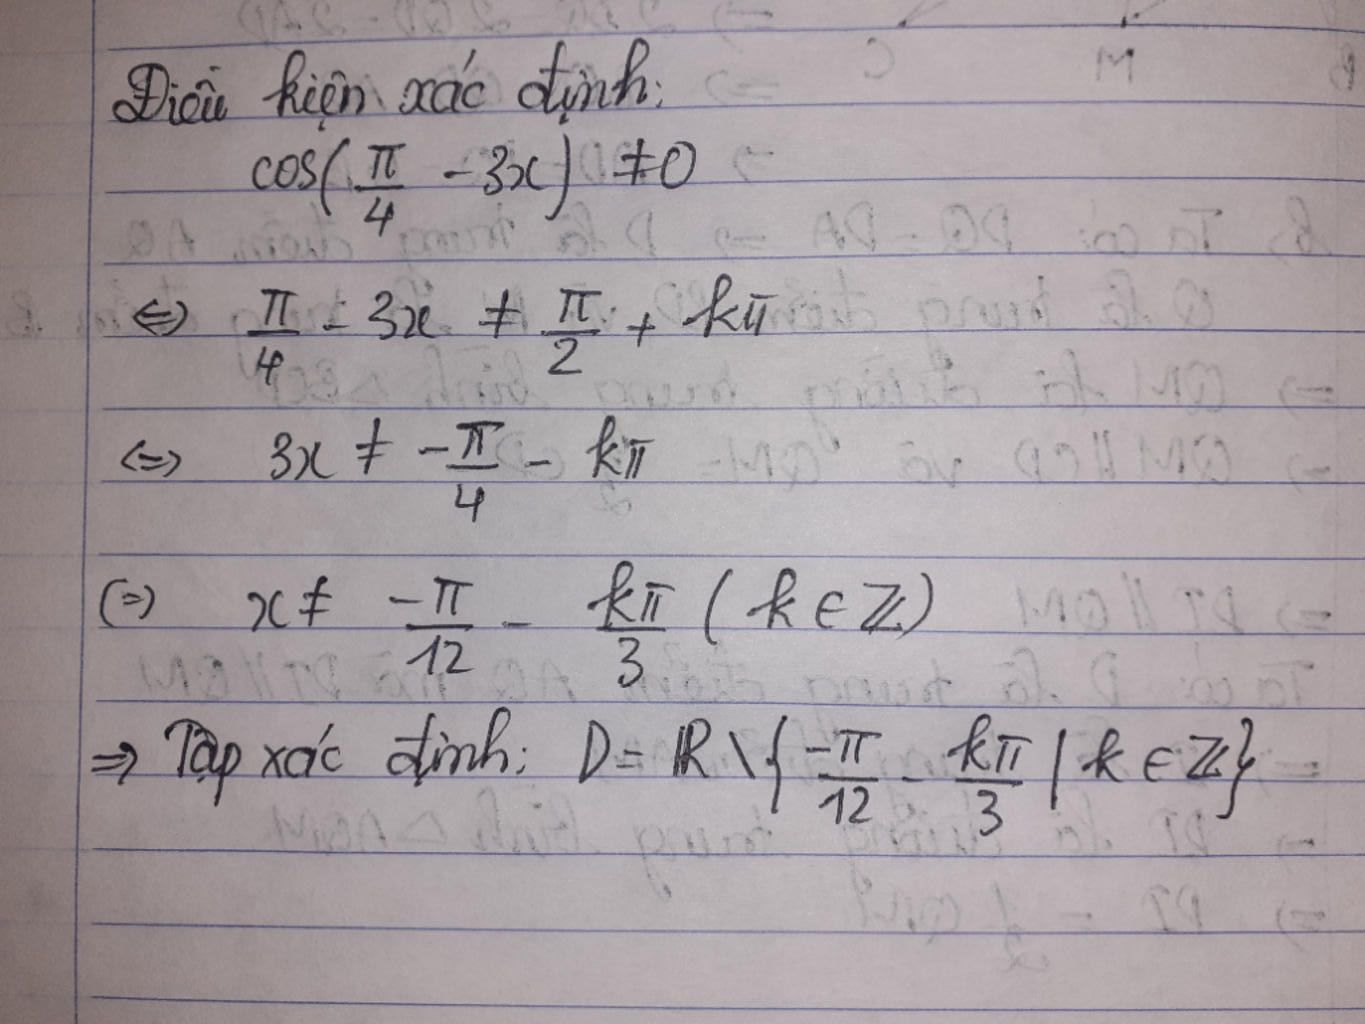 Điều kiện xác định:
cos(π/4 - 3x) ≠ 0
<=> π/4 - 3x ≠ π/2 + kπ
<=> 3x ≠ -π/4 - kπ
(=) x ≠ -π/12 - kπ/3 ( k ∈ ℤ)
=> Tập xác định: D = ℝ \ { -π/12 - kπ/3 | k ∈ ℤ}